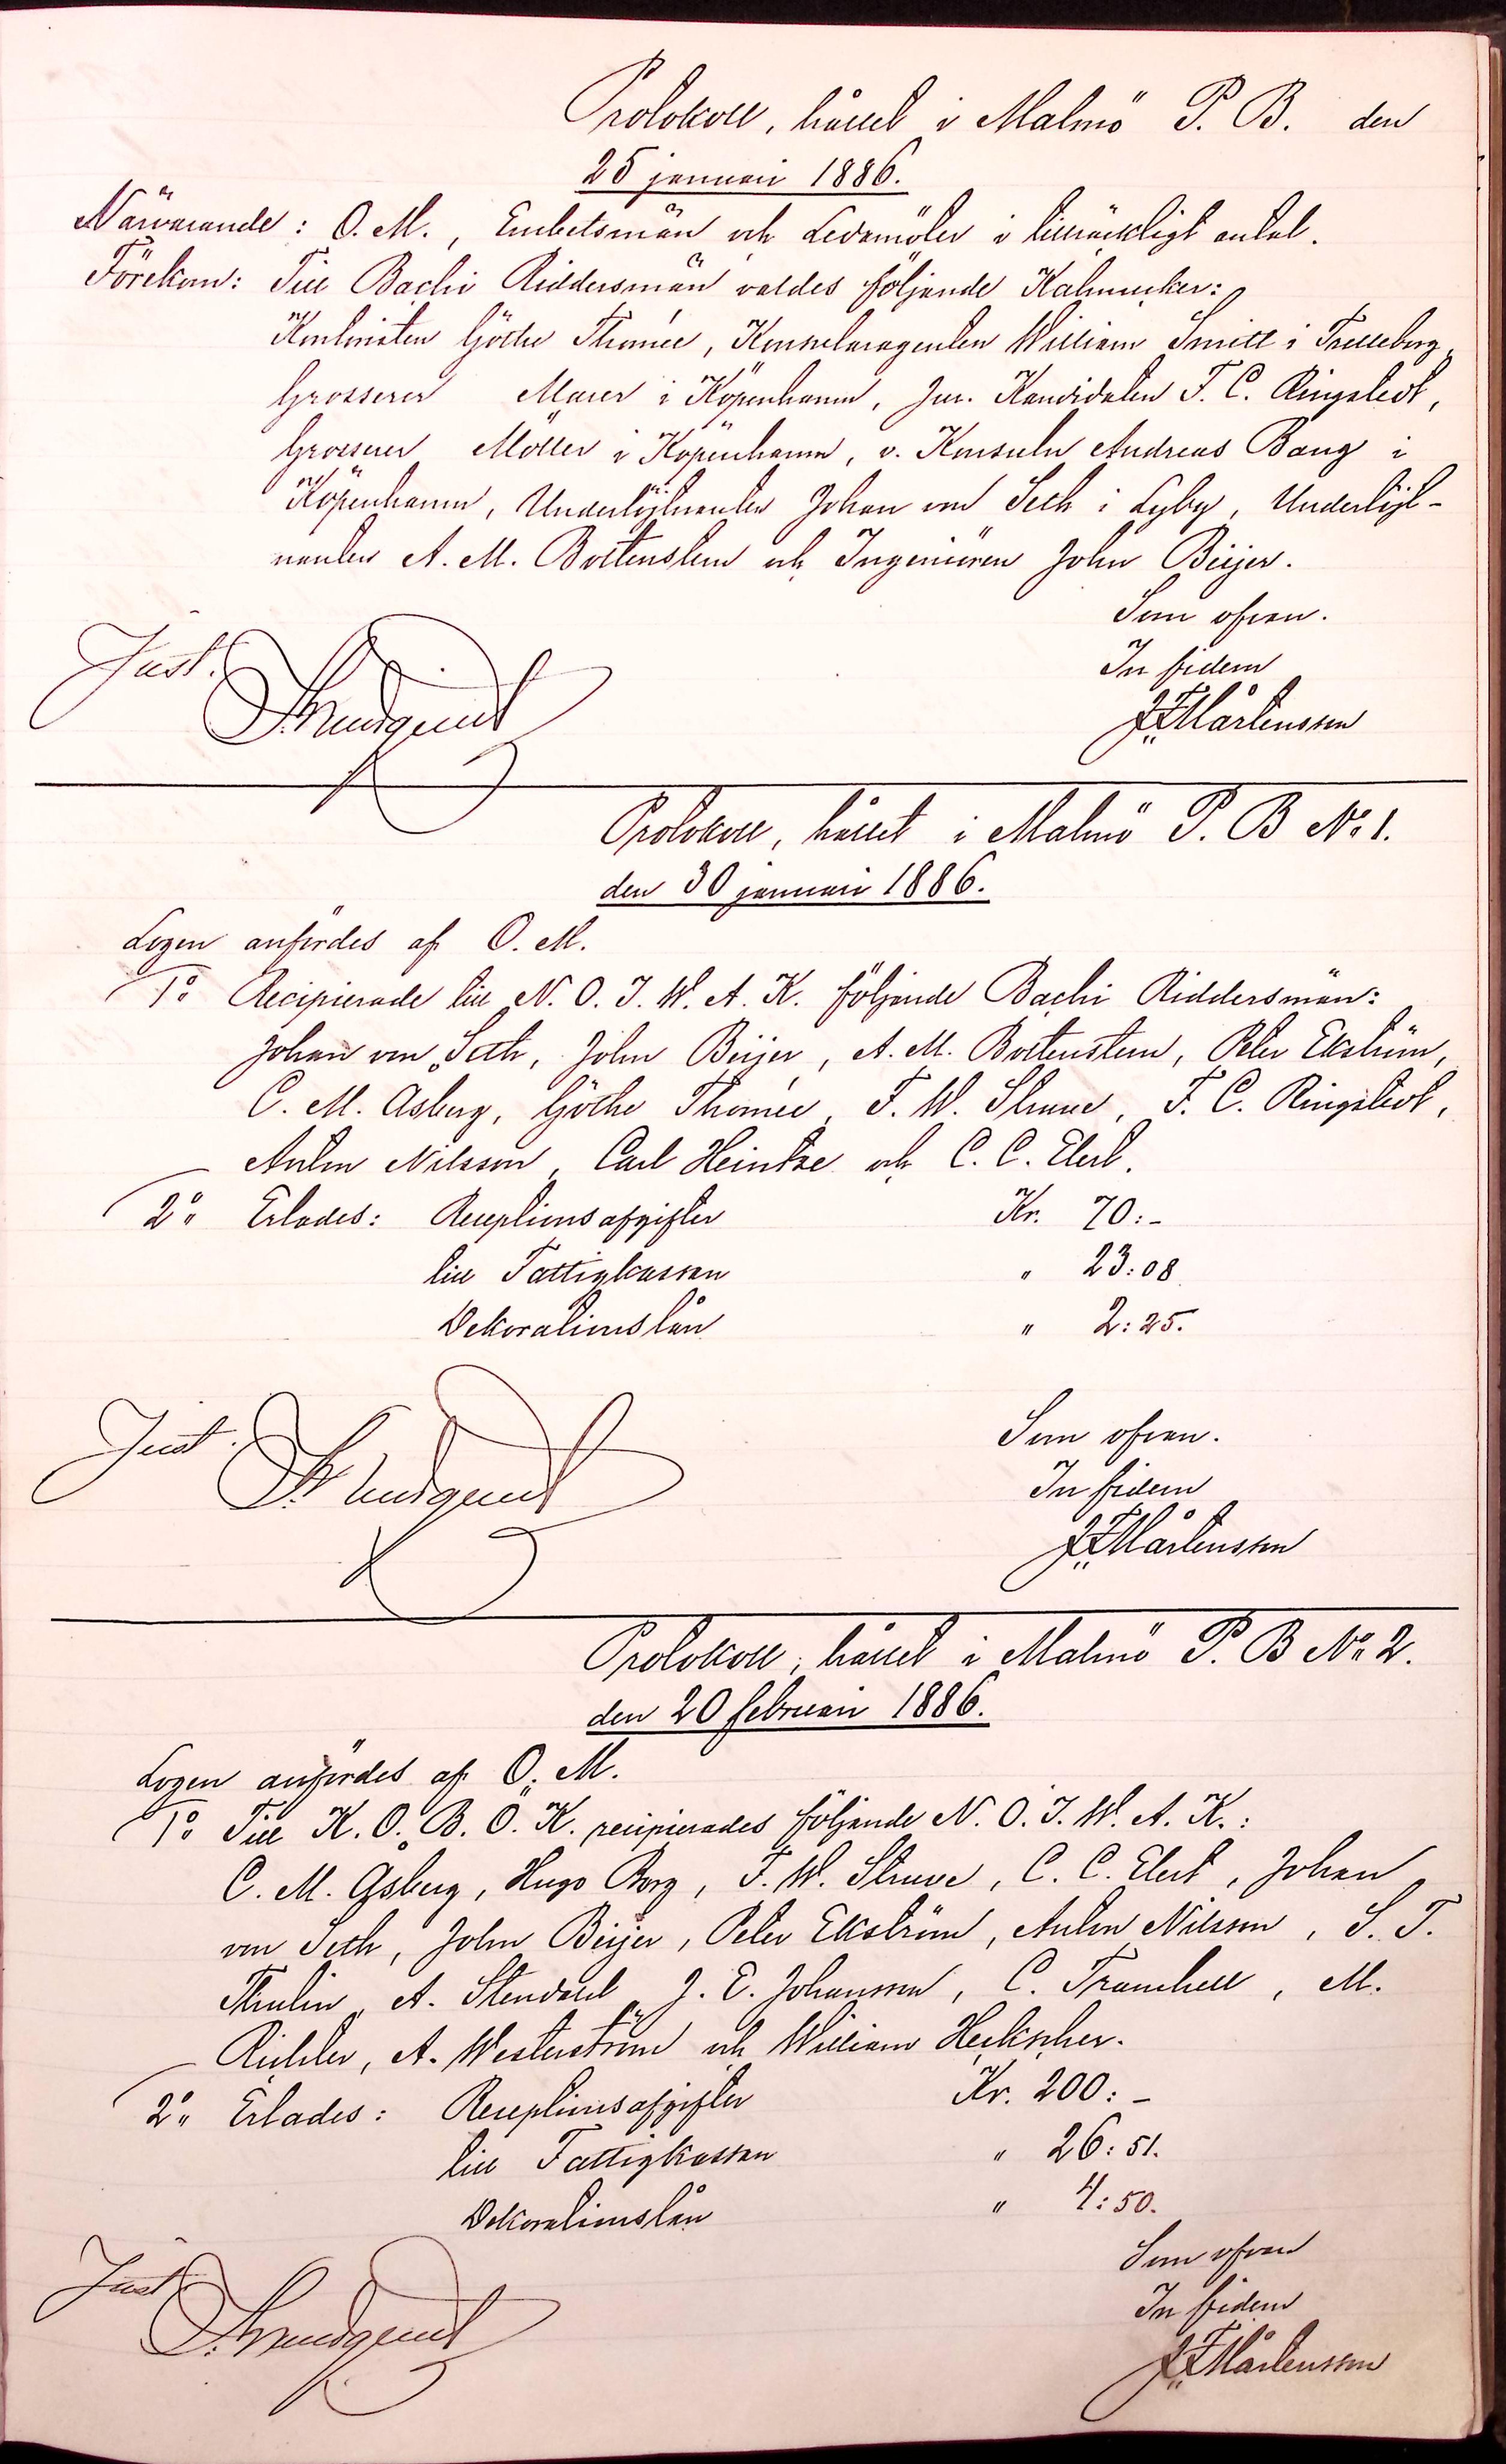 Protokoll, hållet i Malmö P. B. den
25 januari 1886.
Närvarande: O. M., Embetsmän och Ledamöter i tillräckligt antal.
Förekom: Till Bachi Riddersmän valdes följande Kalmucker:
Göthe Thomée, Konsularagenten William Smitt i Trelleborg,
Grosserer Maier i Köpenhamn, Jur. Kandidaten F. C. Ringstedt,
Grosserer Möller i Köpenhamn, v. Konsuln Andreas Bang i
Köpenhamn, Underlöjtnanten Johan von Seth i Lyby, Underlöjt-
nanten A. M. Bottenstein och Ingeniören John Beijer.
Som ofvan.
Just. In fidem
J F Mårtensson
Protokoll, hållet i Malmö P. B No 1.
den 30 januari 1886.
Logen anfördes af O. M.
1o Recipierade till N. O. J. W. A. K. följande Bachi Riddersmän:
Johan von Seth, John Beijer, A. M. Bottenstein, Peter Ekström,
C. M. Asberg, Göthe Thomée, F. W. Struve, F. C. Ringstedt,
Anton Nilsson, Carl Heintze och C. C. Elert.
2o Erlades: Receptionsafgifter Kr. 70:-
till Fattigkassan " 23:08
Dekorationslån " 2:25.
Som ofvan.
Just. In fidem
J F Mårtensson
Protokoll, hållet i Malmö P. B No 2.
den 20 februari 1886.
Logen anfördes af O. M.
1o Till K. O. B. Ö. K. recipierades följande N. O. J. W. A. K.:
C. M. Asberg, Hugo Borg, F. W. Struve, C. C. Elert, Johan
von Seth, John Beijer, Peter Ekström, Anton Nilsson, S. T.
Thulin, A. Stendahl, J. E. Johansson, C. Tranchell, M.
Richter, A. Westerström och William Heckscher.
2o Erlades: Receptionsafgifter Kr. 200:-
till Fattigkassan " 26:51.
Dekorationslån " 4:50.
Som ofvan
Just. In fidem
J F Mårtensson